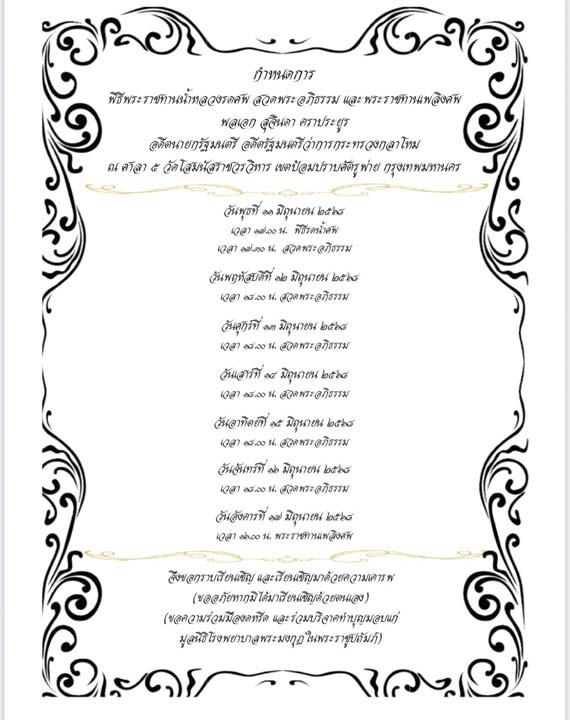 กำหนดการ
พิธีพระราชทานน้ำหลวงรดศพ สวดพระอภิธรรม และพระราชทานเพลิงศพ
พลเอก สุจินดา คราประยูร
อดีตนายกรัฐมนตรี อดีตรัฐมนตรีว่าการกระทรวงกลาโหม
ณ ศาลา ๕ วัดโสมนัสราชวรวิหาร เขตป้อมปราบศัตรูพ่าย กรุงเทพมหานคร
วันพุธที่ ๑๑ มิถุนายน ๒๕๖๘
เวลา ๑๗.๐๐ น. พิธีรดน้ำศพ
เวลา ๑๗.๓๐ น. สวดพระอภิธรรม
วันพฤหัสบดีที่ ๑๒ มิถุนายน ๒๕๖๘
เวลา ๑๘.๐๐ น. สวดพระอภิธรรม
วันศุกร์ที่ ๑๓ มิถุนายน ๒๕๖๘
เวลา ๑๘.๐๐ น. สวดพระอภิธรรม
วันเสาร์ที่ ๑๔ มิถุนายน ๒๕๖๘
เวลา ๑๘.๐๐ น. สวดพระอภิธรรม
วันอาทิตย์ที่ ๑๕ มิถุนายน ๒๕๖๘
เวลา ๑๘.๐๐ น. สวดพระอภิธรรม
วันจันทร์ที่ ๑๖ มิถุนายน ๒๕๖๘
เวลา ๑๘.๐๐ น. สวดพระอภิธรรม
วันอังคารที่ ๑๗ มิถุนายน ๒๕๖๘
เวลา ๑๖.๐๐ น. พระราชทานเพลิงศพ
จึงขอกราบเรียนเชิญ และเรียนเชิญมาด้วยความเคารพ
(ขออภัยหากมิได้มาเรียนเชิญด้วยตนเอง)
(ขอความร่วมมืองดหรีด และร่วมบริจาคทำบุญมอบแก่
มูลนิธิโรงพยาบาลพระมงกุฎในพระราชูปถัมภ์)